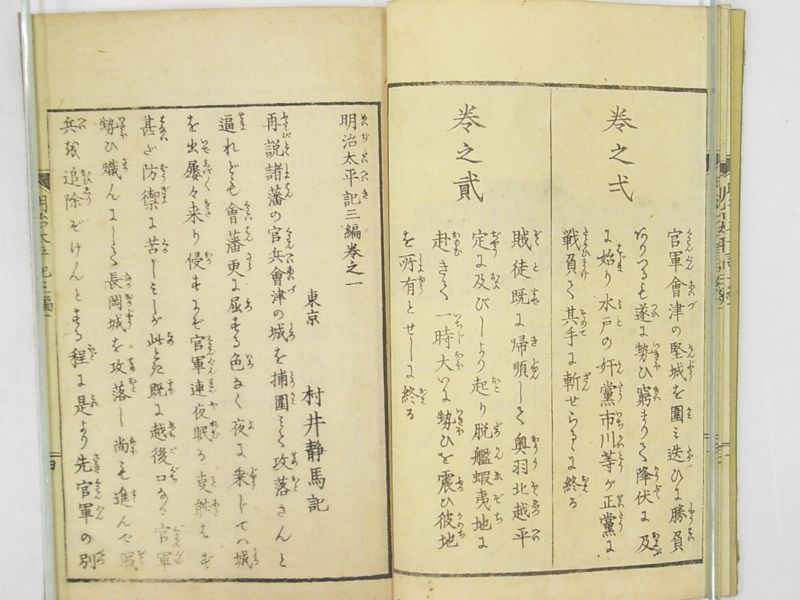 巻之弌
官軍會津の堅城を圍み迭ひに勝負
ありつるも遂に勢ひ窮まりて降伏に及
に始り水戸の奸黨市川等が正黨に
戦負て其手に斬せらるに終る
巻之貳
賊徒既に帰順して奥羽北越平
定に及びしより起り脱艦蝦夷地に
赴きて一時大いに勢ひを震ひ彼地
を所有とせしに終る
明治太平記三編巻之一
東京 村井静馬記
再説諸藩の官兵會津の城を捕圍みて攻落さんと
逼れども會藩更に屈する色なく夜に乗じては城
を出屡々来り侵すにぞ官軍連夜眠る
甚だ防禦に苦しみしが此とき既に越後口なる官軍
勢ひ熾んにして長岡城を攻落し尚も進んで賊
兵を追除ぞけんとする程に是より先官軍の別